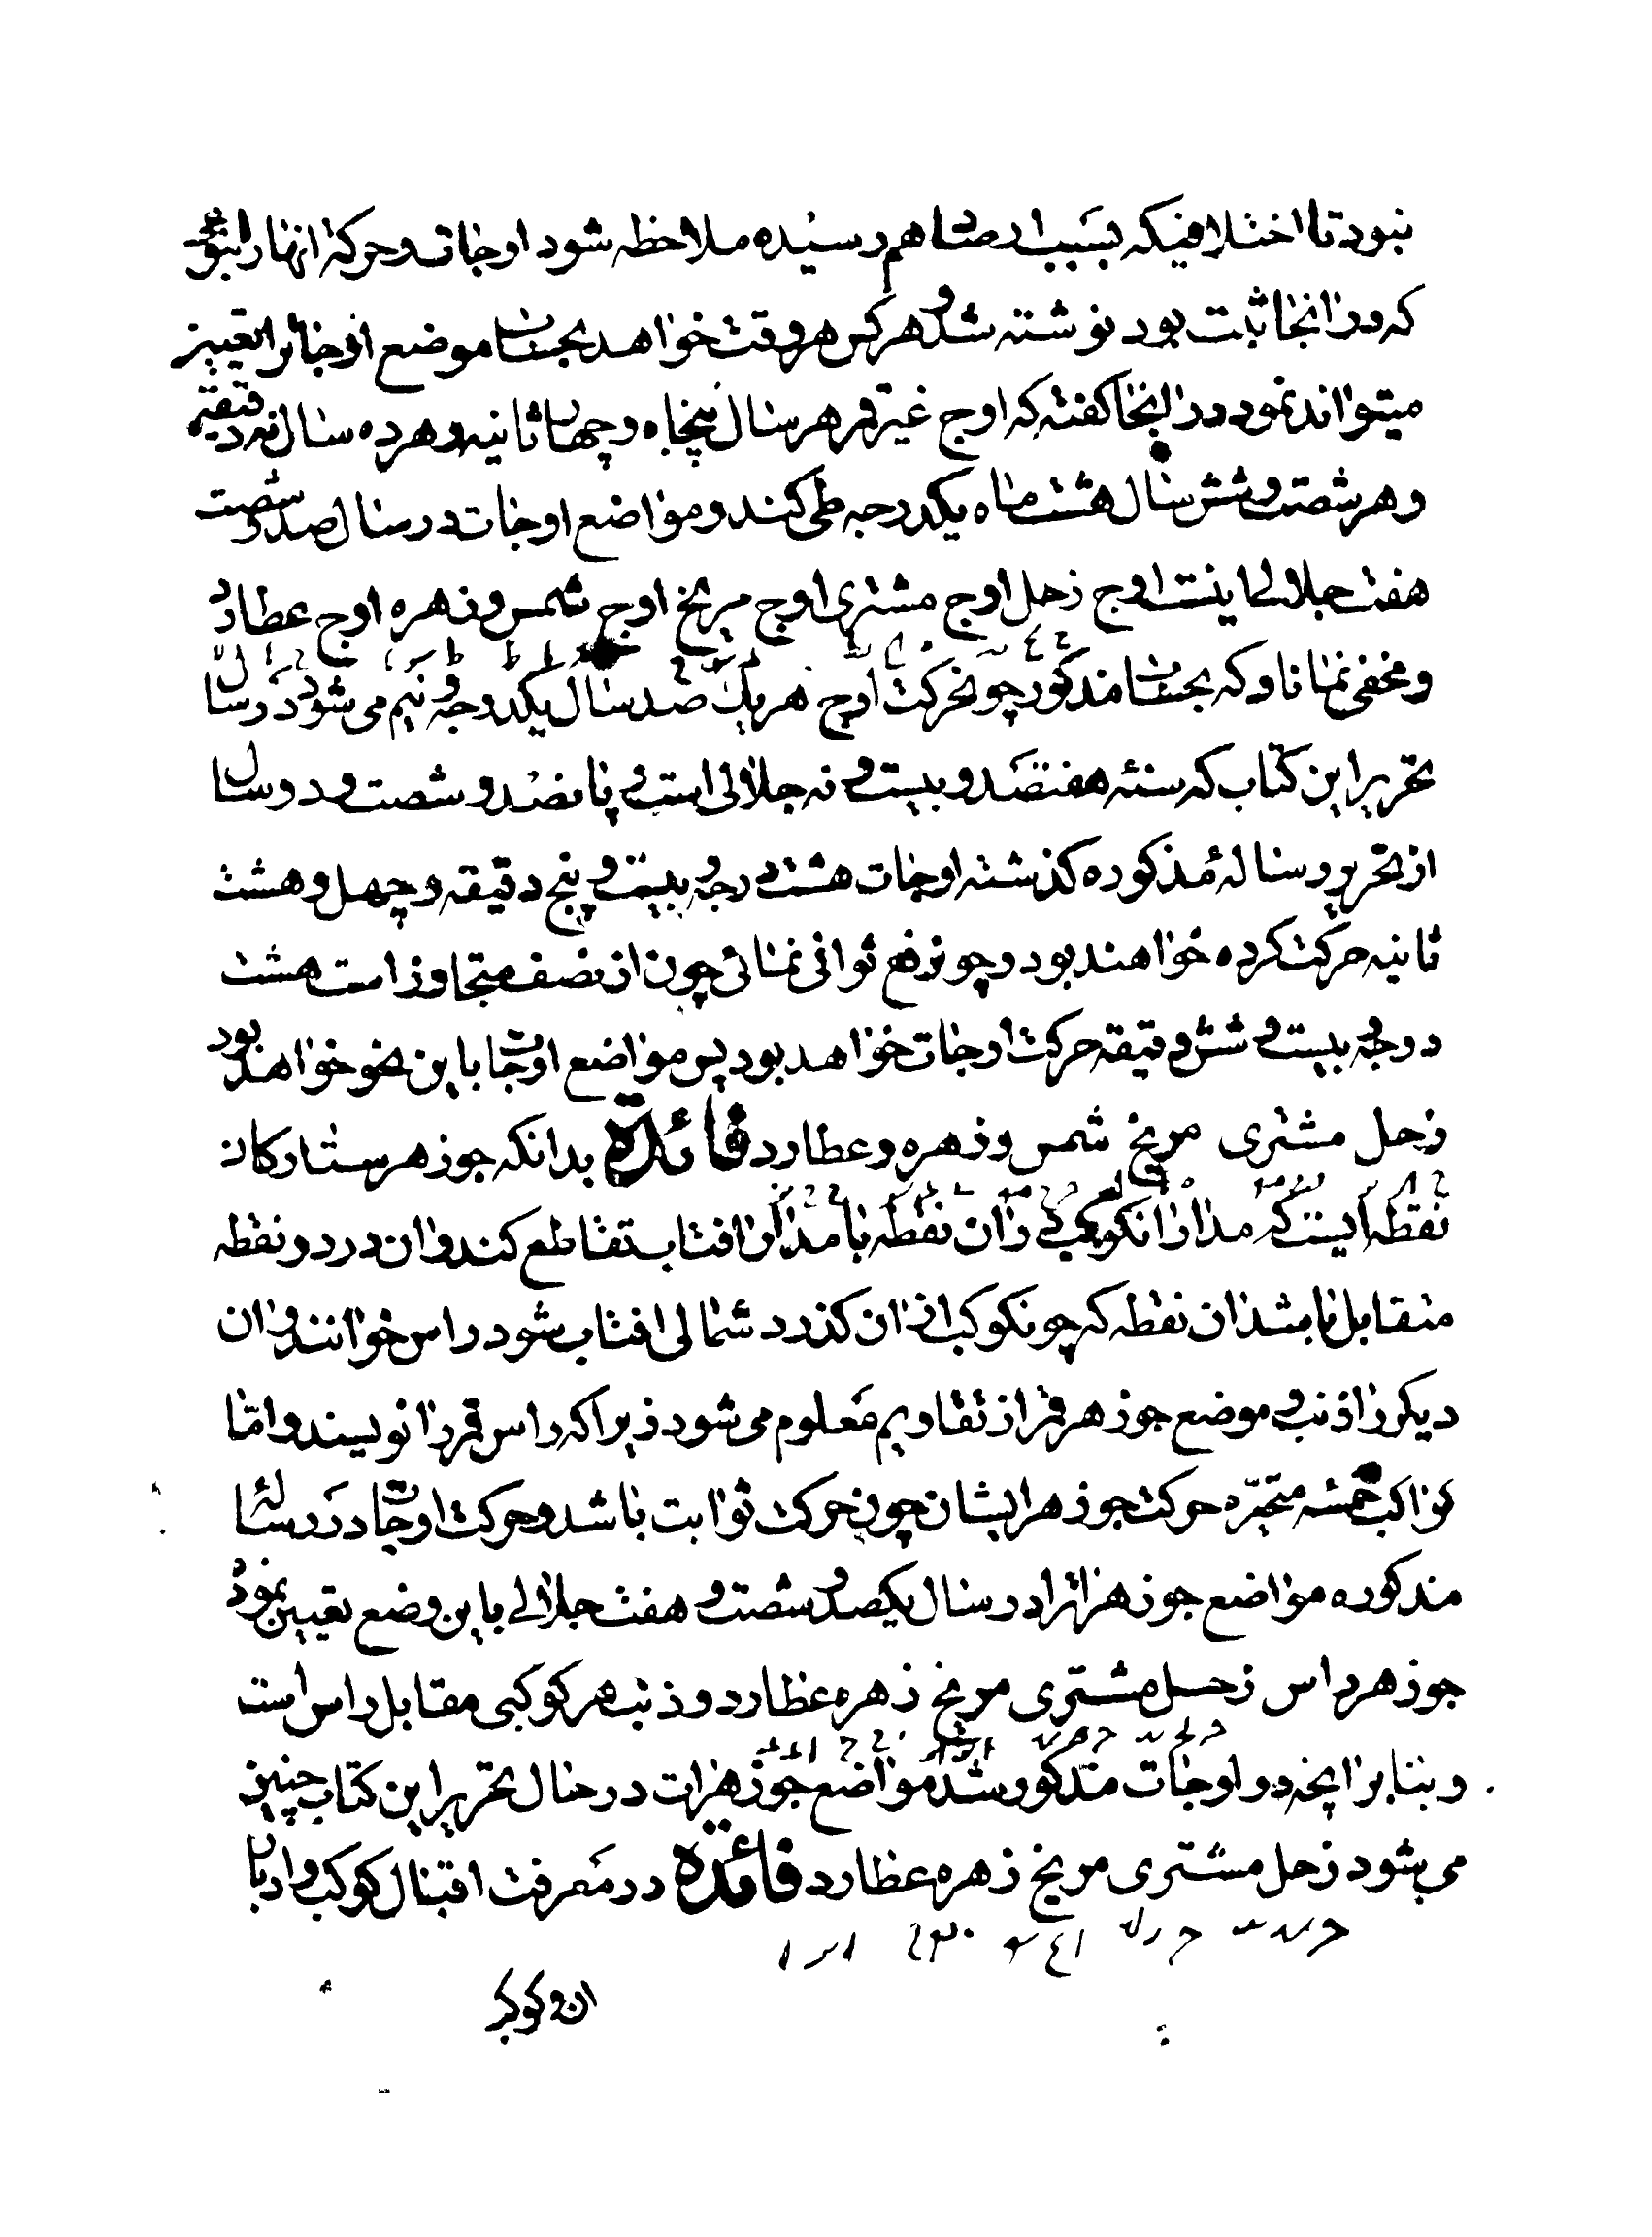 نبود تا اختلافیکه بسبب ارصاد بهم رسیده ملاحظه شود اوجات و حرکة انها را بنوعی
که در انجا ثبت بود نوشته شد و هر کس هر وقت خواهد بحساب موضع اوجات را تعیین
میتواند نمود در اینجا کفته که اوج غیر قمر هر سال پنجاه و چهار ثانیه و هر ده سال نه دقیقه
و هر شصت و شش سال هشت ماه یکدرجه طی کند و مواضع اوجات در سال صد و شصت
هفت جلالی اینست اوج زحل اوج مشتری اوج مریخ اوج شمس و زهره اوج عطارد
و مخفی نماناد که بحساب مذکور چون حرکت اوج هر یک صد سال یکدرجه و نیم می شود در سال
تحریر این کتاب که سنه هفتصد و بیست و نه جلالی است و پانصد و شصت و دو سال
از تحریر رساله مذکوره کذشته اوجات هشت درجه و بیست و پنج دقیقه و چهل و هشت
ثانیه حرکت کرده خواهند بود و چون رفع ثوانی نمائی چون از نصف متجاوز است هشت
درجه و بیست و شش دقیقه حرکت اوجات خواهد بود پس مواضع اوجات باین نحو خواهد بود
زحل مشتری مریخ شمس و زهره و عطارد فائدة بدانکه جوزهر ستارکان
نقطه ایست که مدار ان کوکب در ان نقطه با مدار افتاب تقاطع کند و ان در دو نقطه
متقابل باشد ان نقطه که چون کوکب از ان کذرد شمالی افتاب شود راس خوانند و ان
دیکر را ذنب و موضع جوزهر قمر از تقاویم معلوم می شود زیرا که راس قمر را نویسند و اما
کواکب خمسه متحیره حرکت جوزهر ایشان چون حرکت ثوابت باشد و حرکت اوجات در رساله
مذکوره مواضع جوزهرات را در سال یکصد و شصت و هفت جلالی باین وضع تعیین نمود
جوزهر راس زحل مشتری مریخ زهره عطارد و ذنب هر کوکبی مقابل راس است
و بنابر انچه در اوجات مذکور شد مواضع جوزهرات در حال تحریر این کتاب چنین
می شود زحل مشتری مریخ زهره عطارد فائدة در معرفت اقبال کوکب و ادبار
ان کوکب